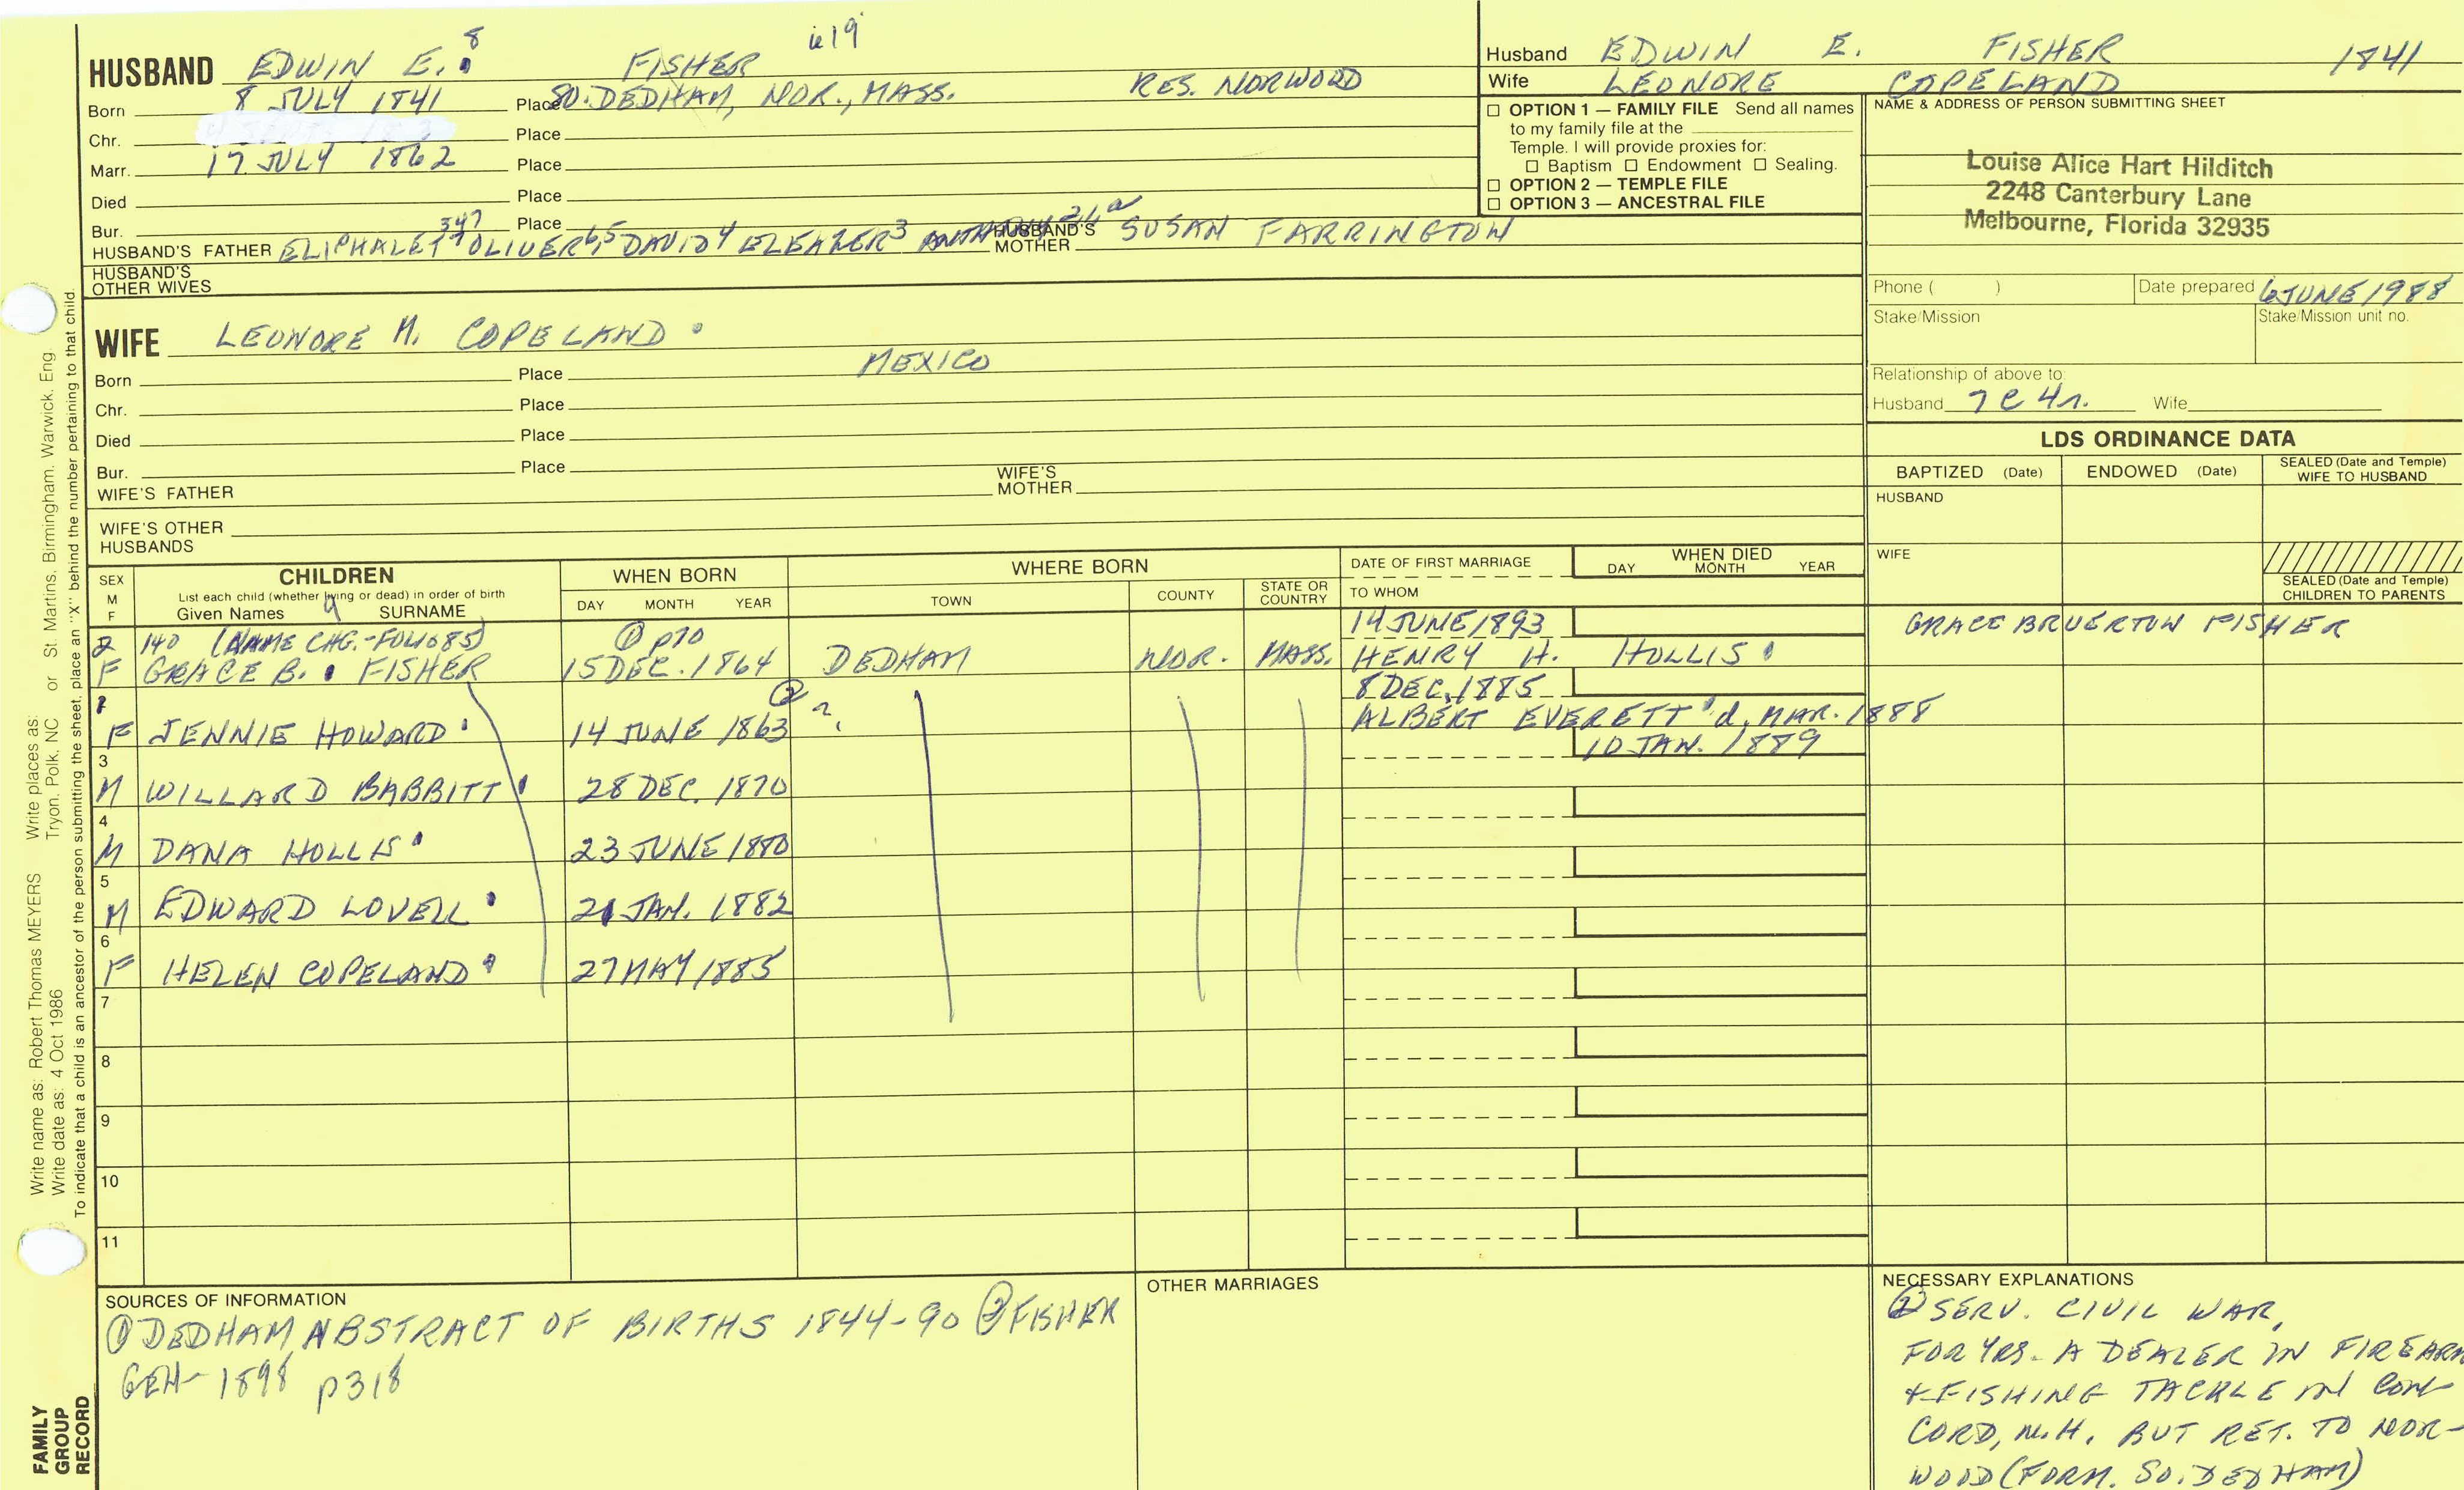 ie19
HUSBAND EDWIN E. 8 FISHER
Born 8 JULY 1841 Place SO. DEDHAM, NOR., MASS. RES. NORWOOD
Chr. Place
Marr. 17 JULY 1862 Place
Died Place
Bur. Place
HUSBAND'S FATHER ELIPHALET 347 7 OLIVER 6,5 DAVID 4 ELEAZER 3 HUSBAND'S MOTHER SUSAN FARRINGTON
HUSBAND'S OTHER WIVES
Husband EDWIN E. FISHER 1841
Wife LEONORE COPELAND
☐ OPTION 1 — FAMILY FILE Send all names
to my family file at the
Temple. I will provide proxies for:
☐ Baptism ☐ Endowment ☐ Sealing.
☐ OPTION 2 — TEMPLE FILE
☐ OPTION 3 — ANCESTRAL FILE
NAME & ADDRESS OF PERSON SUBMITTING SHEET
Louise Alice Hart Hilditch
2248 Canterbury Lane
Melbourne, Florida 32935
Phone ( ) Date prepared 6 JUNE 1988
Stake/Mission Stake/Mission unit no.
Relationship of above to:
Husband 7C4r. Wife
WIFE LEONORE M. COPELAND
Born Place MEXICO
Chr. Place
Died Place
Bur. Place
WIFE'S FATHER WIFE'S MOTHER
WIFE'S OTHER HUSBANDS
LDS ORDINANCE DATA
BAPTIZED (Date) ENDOWED (Date) SEALED (Date and Temple) WIFE TO HUSBAND
HUSBAND
WIFE
SEALED (Date and Temple) CHILDREN TO PARENTS
SEX M F
CHILDREN
List each child (whether living or dead) in order of birth
Given Names 9 SURNAME
WHEN BORN
DAY MONTH YEAR
WHERE BORN
TOWN COUNTY STATE OR COUNTRY
DATE OF FIRST MARRIAGE
TO WHOM
WHEN DIED
DAY MONTH YEAR
2 140 (NAME CHG.-FOLIO 85) ① p70 14 JUNE 1893 GRACE BRUERTON FISHER
F GRACE B. FISHER 15 DEC. 1864 DEDHAM NOR. MASS. HENRY H. HOLLIS
1 ② 8 DEC. 1885
F JENNIE HOWARD 14 JUNE 1863 ? ALBERT EVERETT d. MAR. 1888
3 10 JAN. 1889
M WILLARD BABBITT 28 DEC. 1870
4
M DANA HOLLIS 23 JUNE 1880
5
M EDWARD LOVELL 21 JAN. 1882
6
F HELEN COPELAND 27 MAY 1885
7
8
9
10
11
SOURCES OF INFORMATION
① DEDHAM ABSTRACT OF BIRTHS 1844-90 ② FISHER
GEN 1898 p318
OTHER MARRIAGES
NECESSARY EXPLANATIONS
② SERV. CIVIL WAR,
FOR YRS. A DEALER IN FIREARM
+ FISHING TACKLE IN CON-
CORD, N.H. BUT RET. TO NOR-
WOOD (FORM. SO. DEDHAM)
Write name as: Robert Thomas MEYERS Write places as:
Write date as: 4 Oct 1986 Tryon, Polk, NC or St. Martins, Birmingham, Warwick, Eng.
To indicate that a child is an ancestor of the person submitting the sheet, place an "X" behind the number pertaining to that child.
FAMILY
GROUP
RECORD